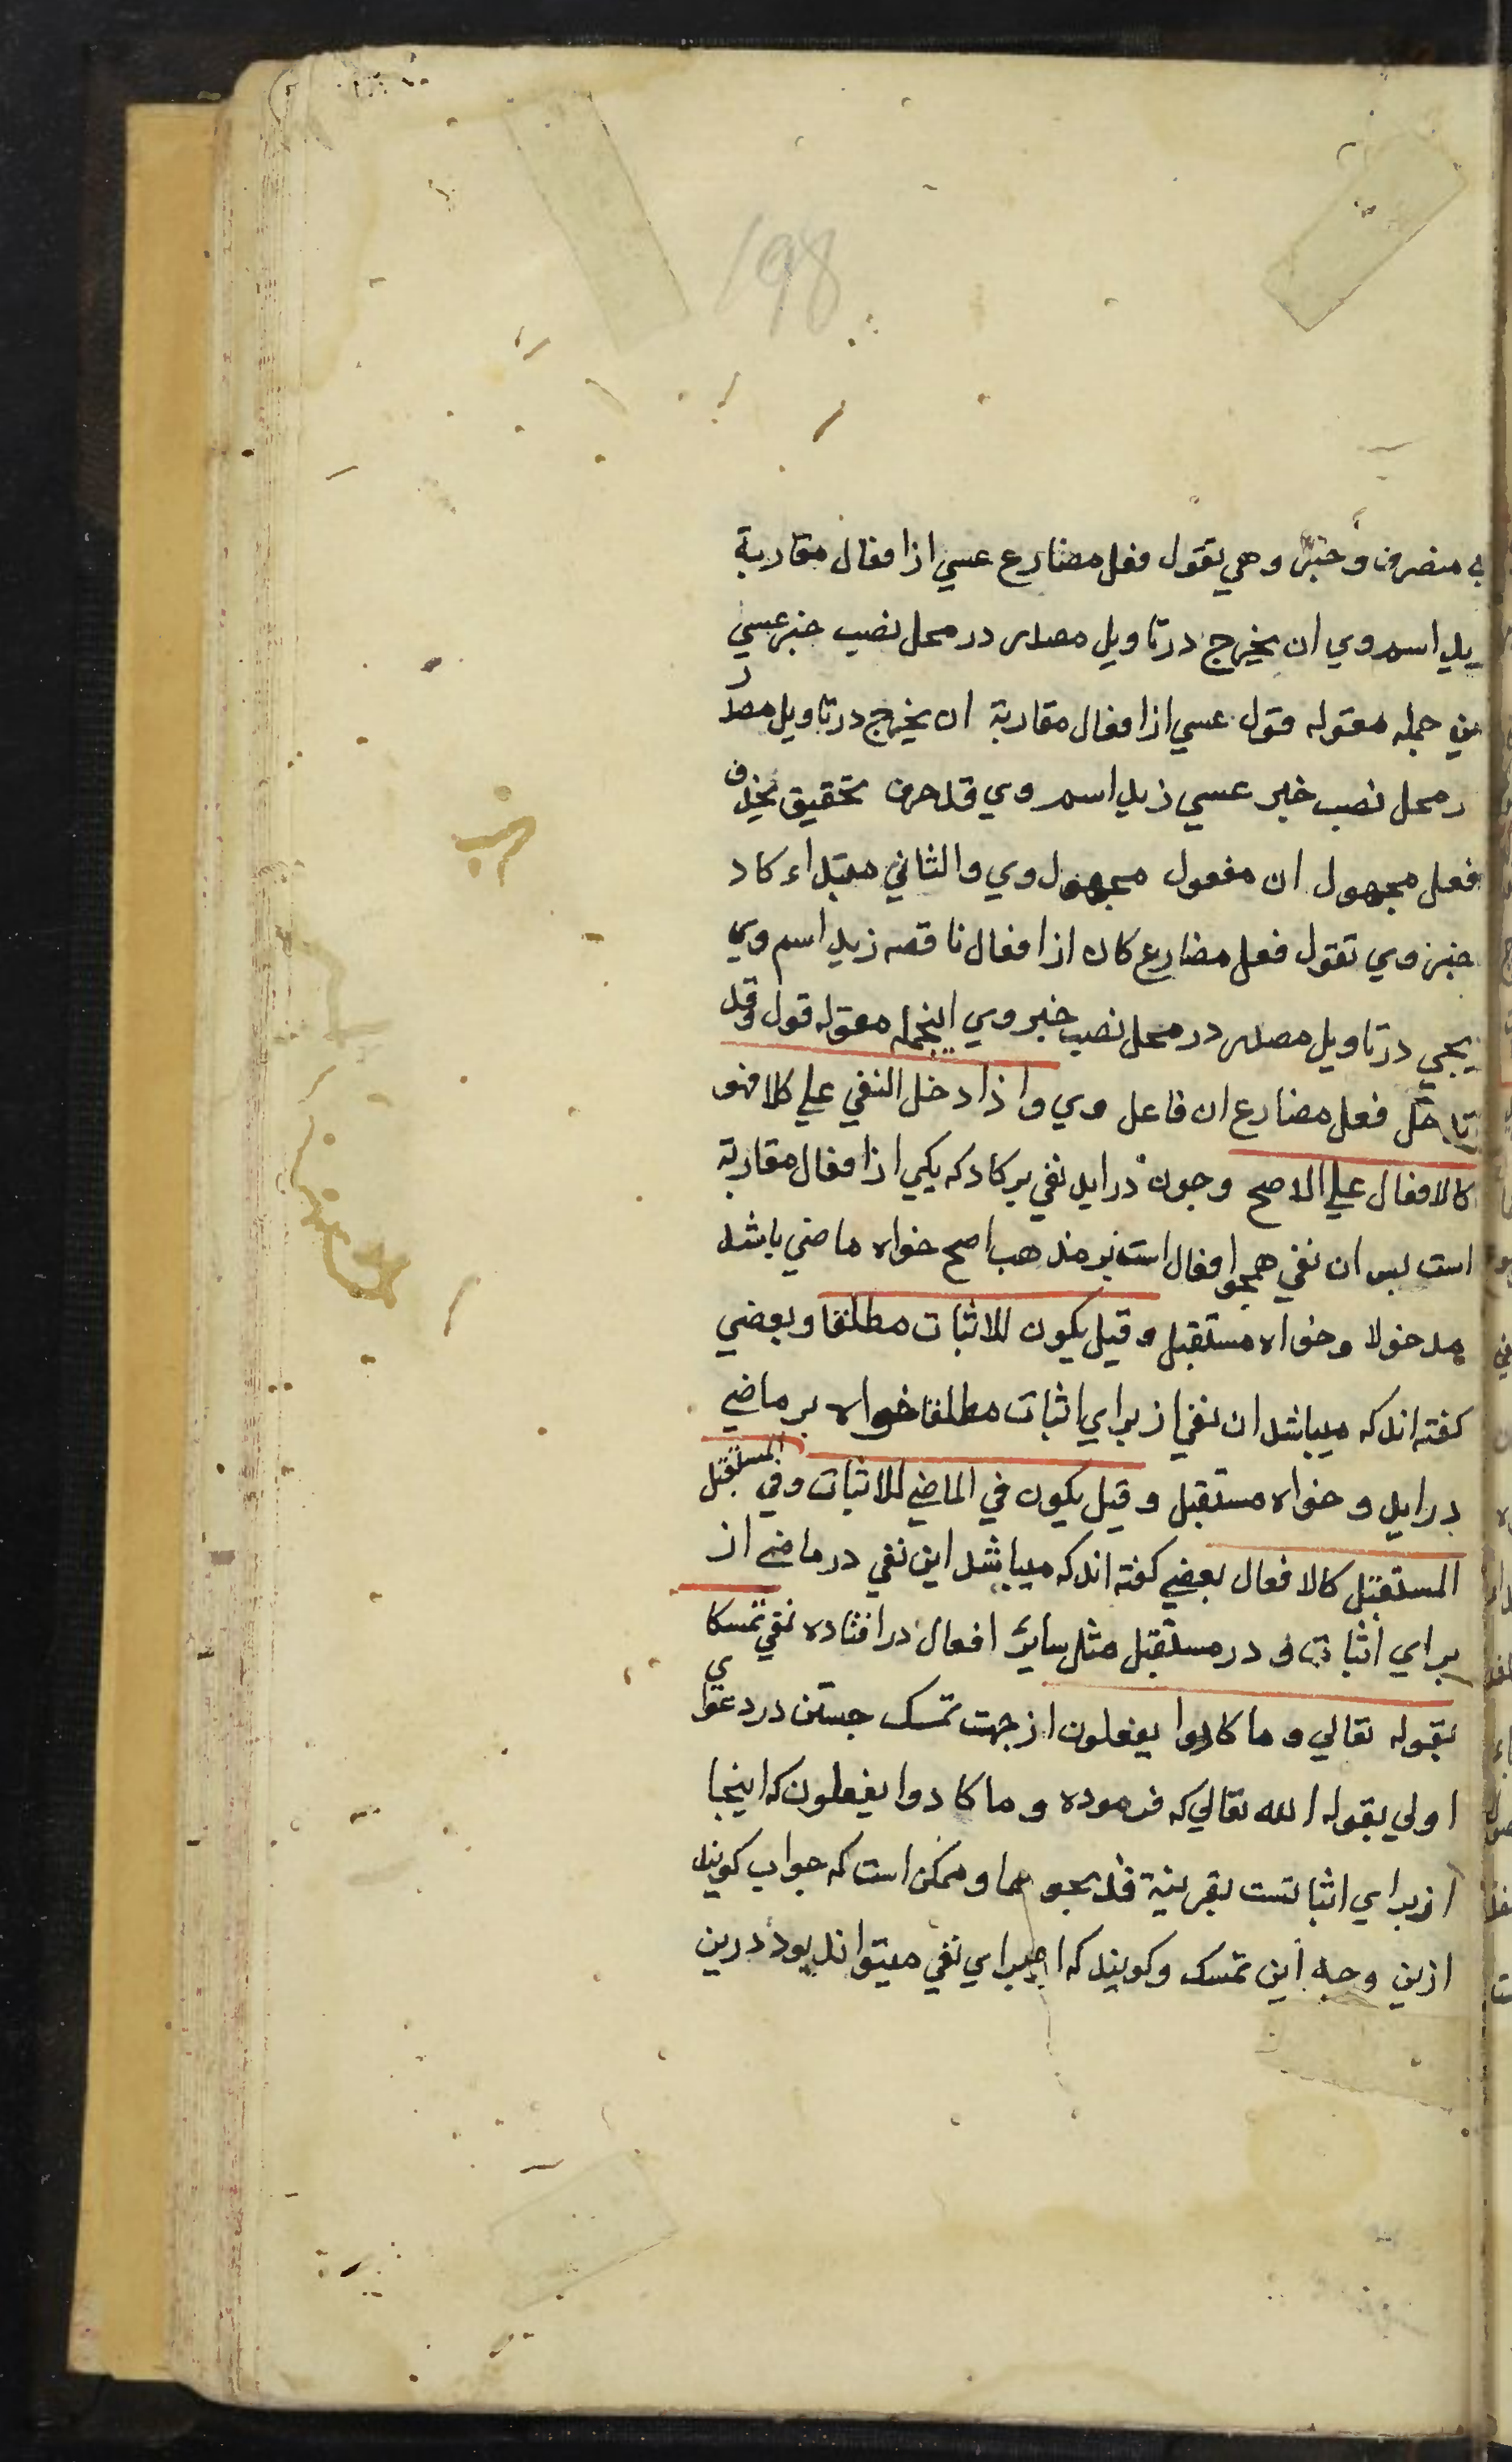 198
منصرف وخبر وهي يقول فعل مضارع عسي از افعال مقاربة
يد اسم وي ان يخرج در تاويل مصدر در محل نصب خبر عسي
جمله مقوله قول عسي از افعال مقاربة ان يخرج در تاويل مصدر
ر محل نصب خبر عسي زيد اسم وي قد حرف تحقيق يحذف
فعل مجهول ان مفعول مجهول وي والثاني مبتداء كاد
خبر وي تقول فعل مضارع كاد از افعال ناقصه زيد اسم وي
يجي در تاويل مصدر در محل نصب خبر وي اينجمله مقوله قول وقد
تدخل فعل مضارع ان فاعل وي واذا دخل النفي علي كاد فهو
كالافعال علي الاصح وجون درايد نفي بر كاد كه يكي از افعال مقاربة
است بس ان نفي همجو افعال است بر مذهب اصح خواه ماضي باشد
مدخولا وخواه مستقبل وقيل يكون للاثبات مطلقا وبعضي
كفته اند كه ميباشد ان نفي از براي اثبات مطلقا خواه بر ماضي
درايد و خواه مستقبل وقيل يكون في الماضي للاثبات وفي المستقبل
المستقبل كالافعال بعضي كفته اند كه ميباشد اين نفي در ماضي از
براي اثبات و در مستقبل مثل ساير افعال در افتاده نفي تمسكا
بقوله تعالي وما كادوا يفعلون از جهت تمسك جستن در دعوي
اولي بقوله الله تعالي كه فرموده وما كادوا يفعلون كه اينجا
از براي اثباتست بقرينة فذبحوها وممكن است كه جواب كويند
ازين وجه اين تمسك وكويند كه براي نفي ميتواند بود درين